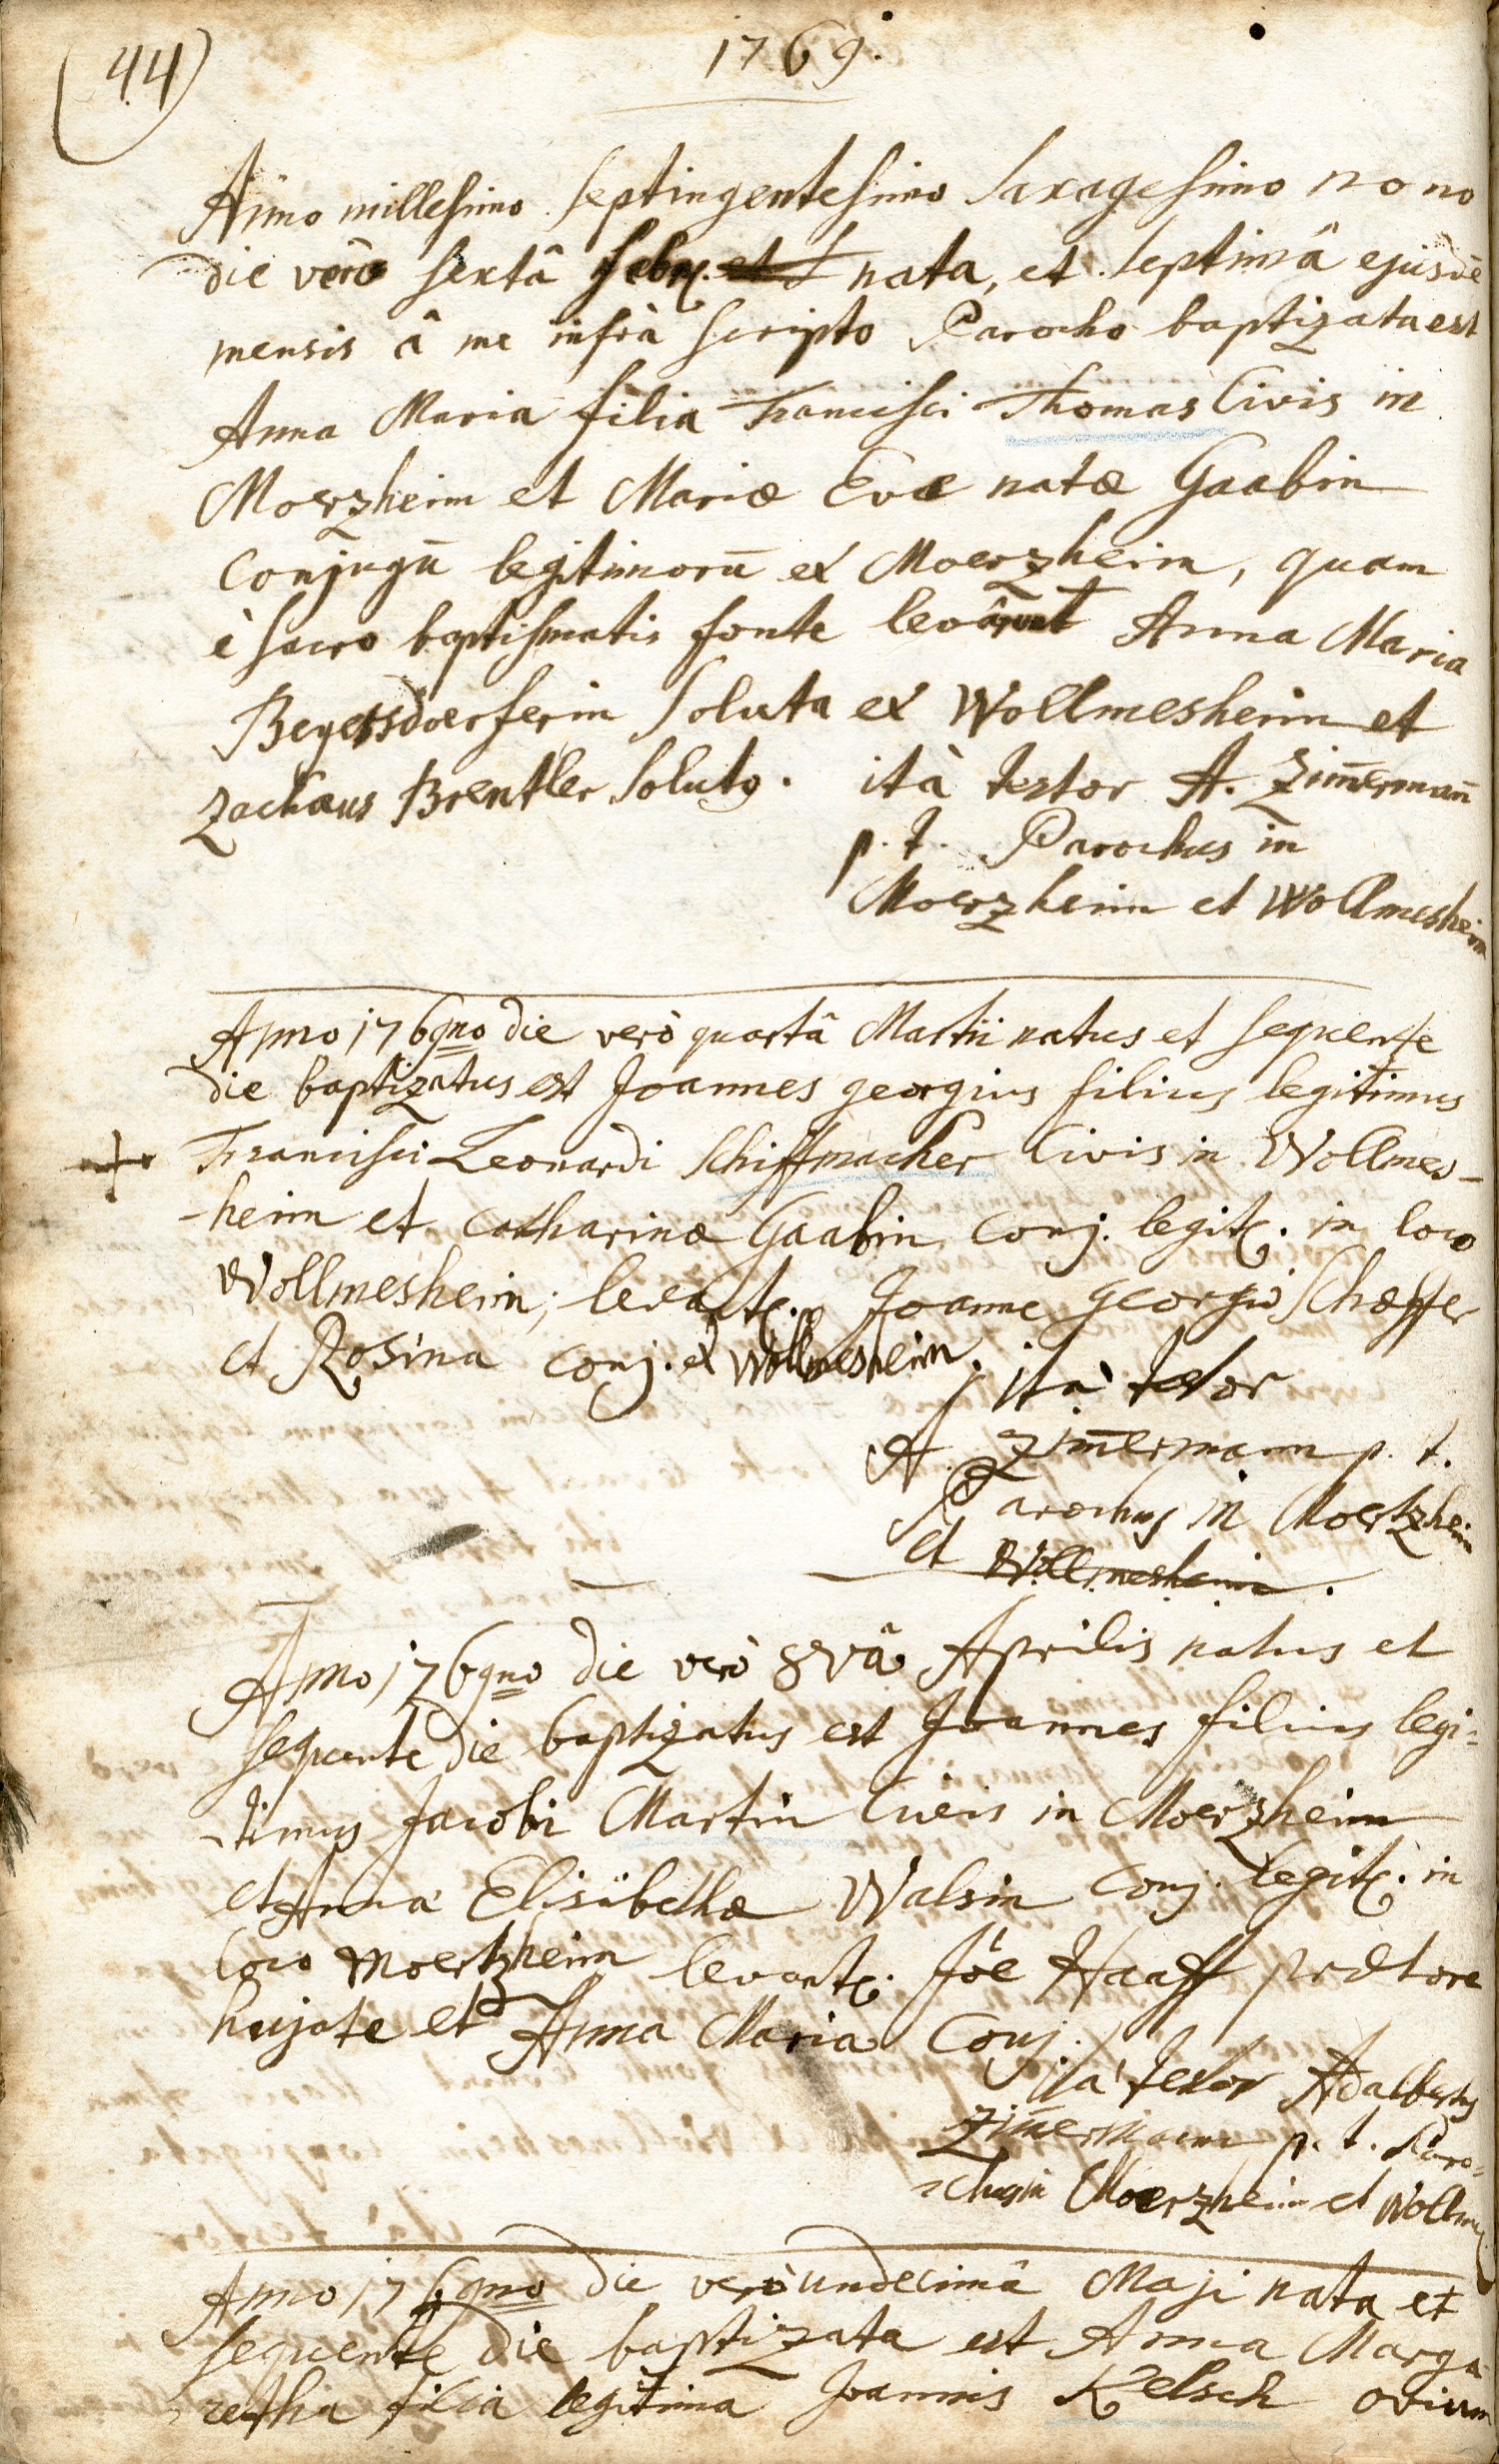 (44)
1769.
Anno millesimo septingentesimo saxagesimo nono
die vero sextâ Febr. nata, et septimâ ejusdē
mensis â me infrà scripto Parocho baptizata est
Anna Maria filia Francisci Thomas Civis in
Moerzheim et Mariæ Evæ natæ Gaabin
Conjugū legitimorū ex Moerzheim, quam
è sacro baptismatis fonte levârunt Anna Maria
Begersdoerferin Soluta ex Wollmesheim et
Zachæus Brentler Solutq. ità testor A. Zim̄erman̄
p. t. Parochus in
Moerzheim et Wollmesheim
Anno 1769no die verò quartâ Martii natus et sequente
die baptizatus est Joannes georgius filius legitimus
Francisci Leonardi Schiffmacher Civis in Wollmes-
-heim et Catharinæ Gaabin Conj. legit. in loco
Wollmesheim; levant. Joanne georgio Schæffer
et Rosina conj. ex Wollmesheim. ità testor
A. Zim̄ermann p. t.
Parochus in Moertzheim
et Wollmesheim.
Anno 1769no die verò 8vâ Aprilis natus et
sequente die baptizatus est Joannes filius legi-
-timus Jacobi Martin Civis in Moerzheim
et Anna Elisabethæ Walsin Conj. legit. in
loco Moertzheim levant. Jōe Haaff prætore
hujate et Anna Maria Conj.
ità testor Adalbertus
Zim̄ermann p. t. Paro-
-chus in Moerzheim et Wollm
Anno 1769no die verò undecimâ Maji nata et
sequente die baptizata est Anna Marga
retha filia legitima Joannis Kelsch